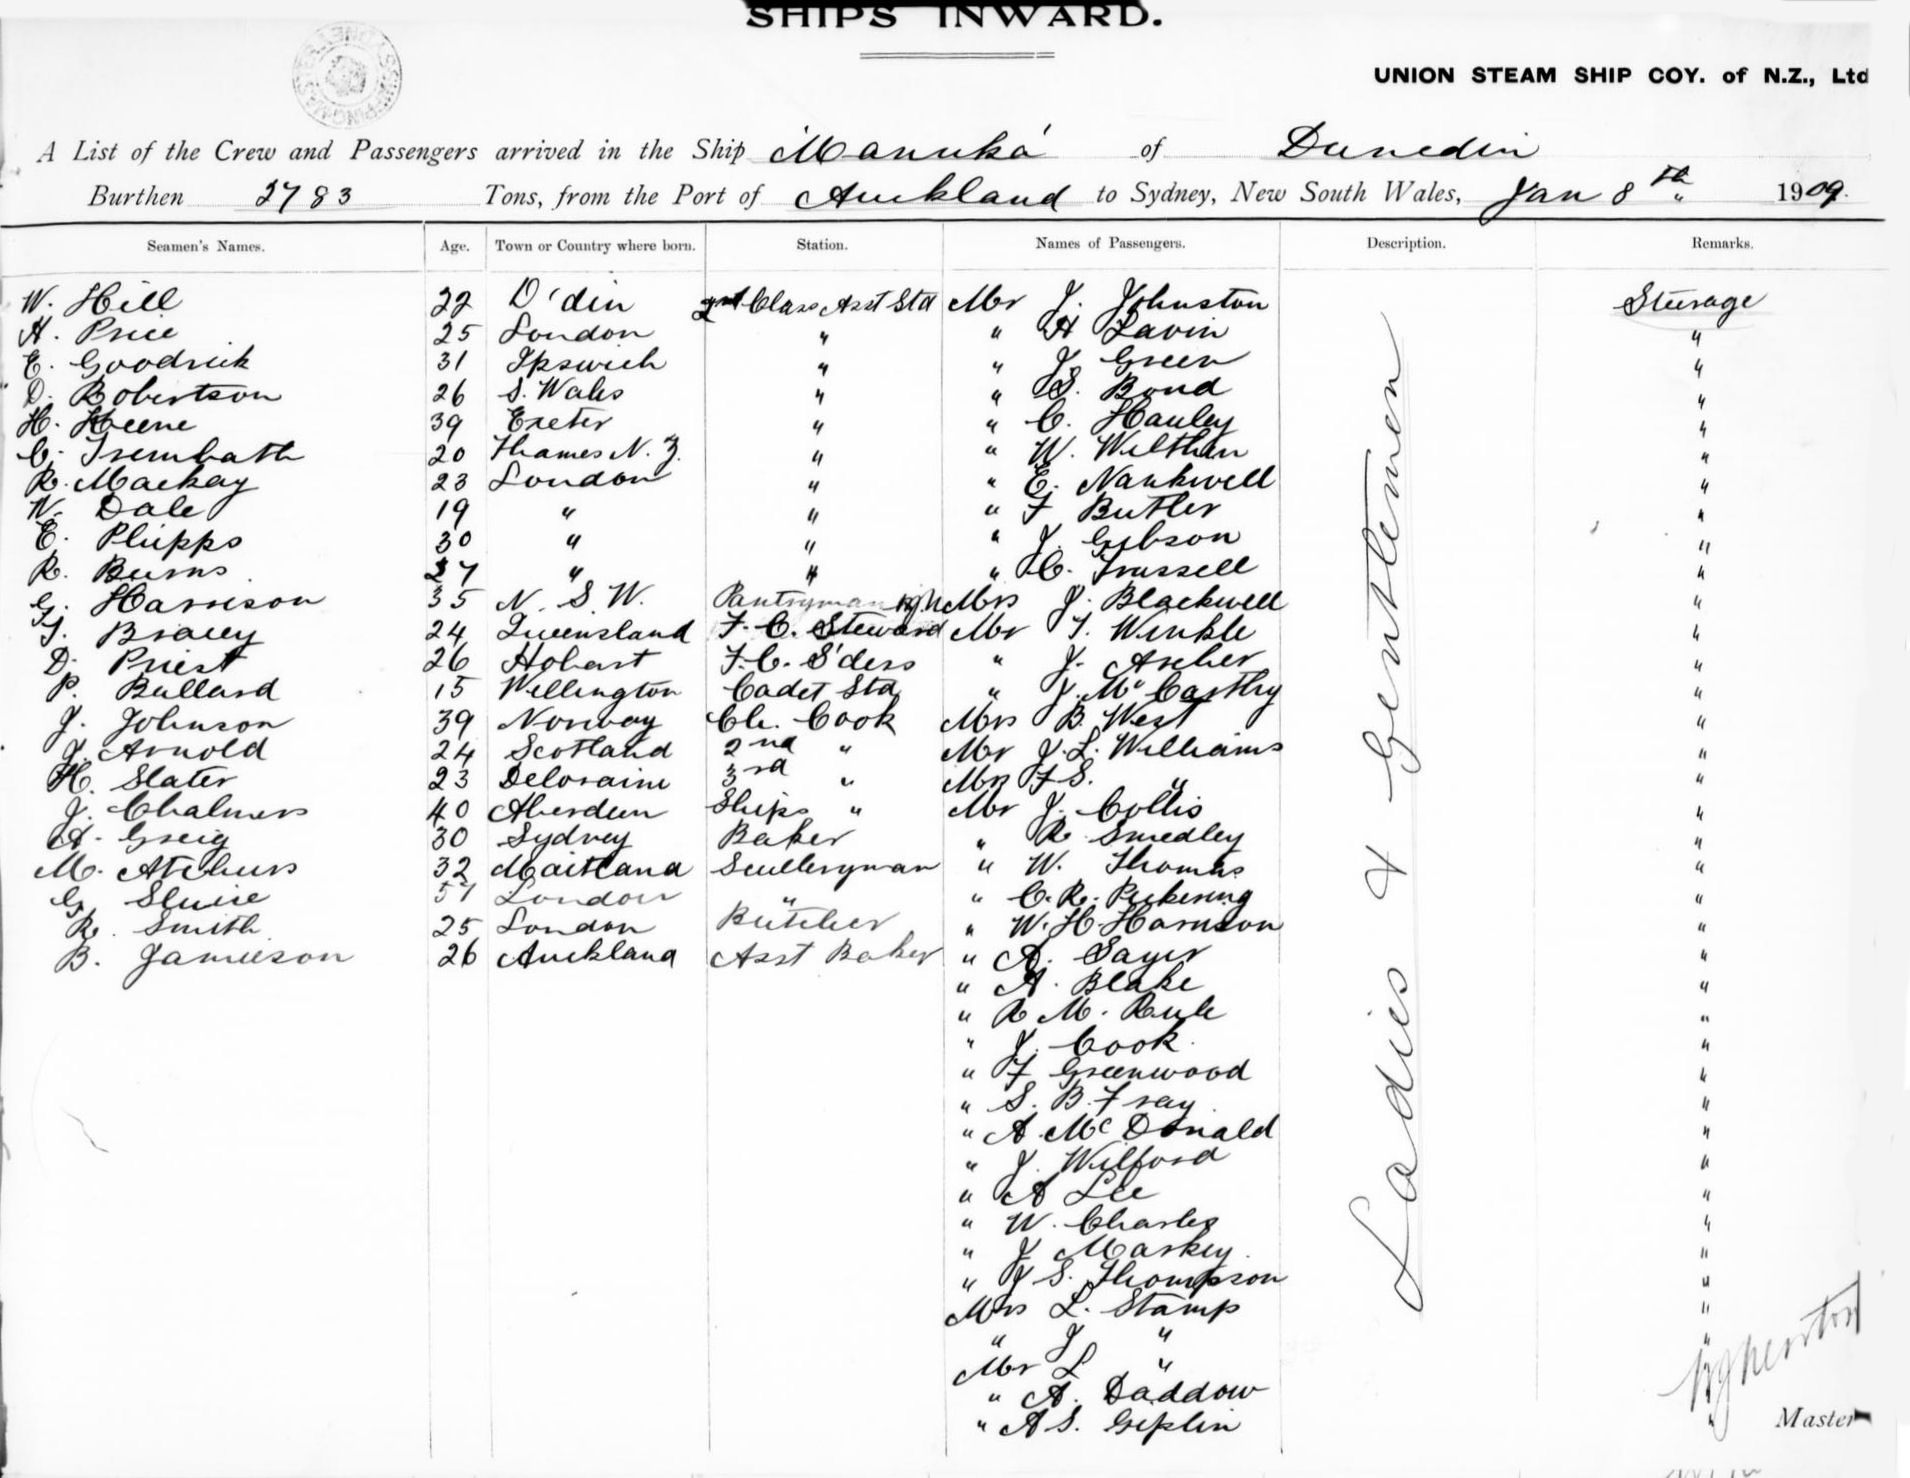 SHIPS INWARD.
UNION STEAM SHIP COY. of N.Z., Ltd
A List of the Crew and Passengers arrived in the Ship Manuka of Dunedin
Burthen 2783 Tons, from the Port of Auckland to Sydney, New South Wales, Jan 8th 1909.
Seamen's Names. Age. Town or Country where born. Station. Names of Passengers. Description. Remarks.
W. Hill 22 D'din 2nd Class Asst Std Mr J. Johnston Steerage
A. Price 25 London " " H Lavin "
E. Goodrick 31 Ipswich " " J. Green "
D. Robertson 26 S. Wales " " S. Bond "
H. Keene 39 Exeter " " C. Hanley "
C. Trembath 20 Thames N.Z. " " W. "
R. Mackay 23 London " " E. Nankwell "
W. Dale 19 " " " F Butler "
E. Phipps 30 " " " J. Gibson "
R. Burns 27 " " " C. Trussell "
G. Harrison 35 N.S.W. Pantryman Mrs J. Blackwell "
T. Bracey 24 Queensland F.C. Steward Mr T. Winkle "
D. Priest 26 Hobart F.C. S'dess " J. Archer "
P. Bullard 15 Wellington Cadet Std " J. McCarthy "
J. Johnson 39 Norway Ch. Cook Mrs B. West "
J. Arnold 24 Scotland 2nd " Mr J.L. Williams "
H. Slater 23 Deloraine 3rd " Mrs F S. " "
J. Chalmers 40 Aberdeen Ships " Mr J. Collis "
A. Greig 30 Sydney Baker " R Smedley "
M. 32 Maitland Sculleryman " W. Thomas "
G. 57 London " " C. R. Pickering "
R. Smith 25 London Butcher " W. H. Harrison "
B. Jamieson 26 Auckland Asst Baker " A. Sayer "
" A. Blake "
" R M. Rule "
" J. Cook "
" F Greenwood "
" S. B. Fray "
" A. McDonald "
" J. Wilford "
" A Lee "
" W. Charles "
" J Markey "
" J S. Thompson "
Mrs L. Stamp "
" J " "
Mr L "
" A. Daddow
" A S. Giplin "
Ladies & Gentlemen
Master